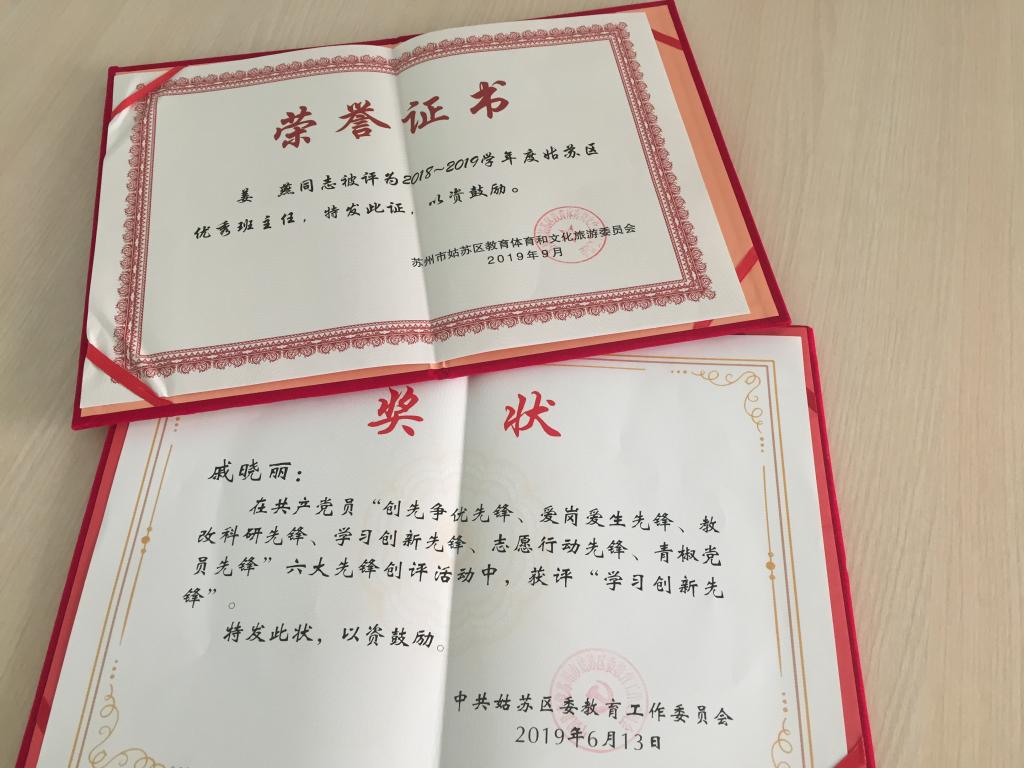 荣誉证书
姜 燕同志被评为2018~2019学年度姑苏区
优秀班主任，特发此证，以资鼓励。
苏州市姑苏区教育体育和文化旅游委员会
2019年9月
奖 状
戚晓丽：
在共产党员“创先争优先锋、爱岗爱生先锋、教
改科研先锋、学习创新先锋、志愿行动先锋、青椒党
员先锋”六大先锋创评活动中，获评“学习创新先
锋”。
特发此状，以资鼓励。
中共姑苏区委教育工作委员会
2019年6月13日